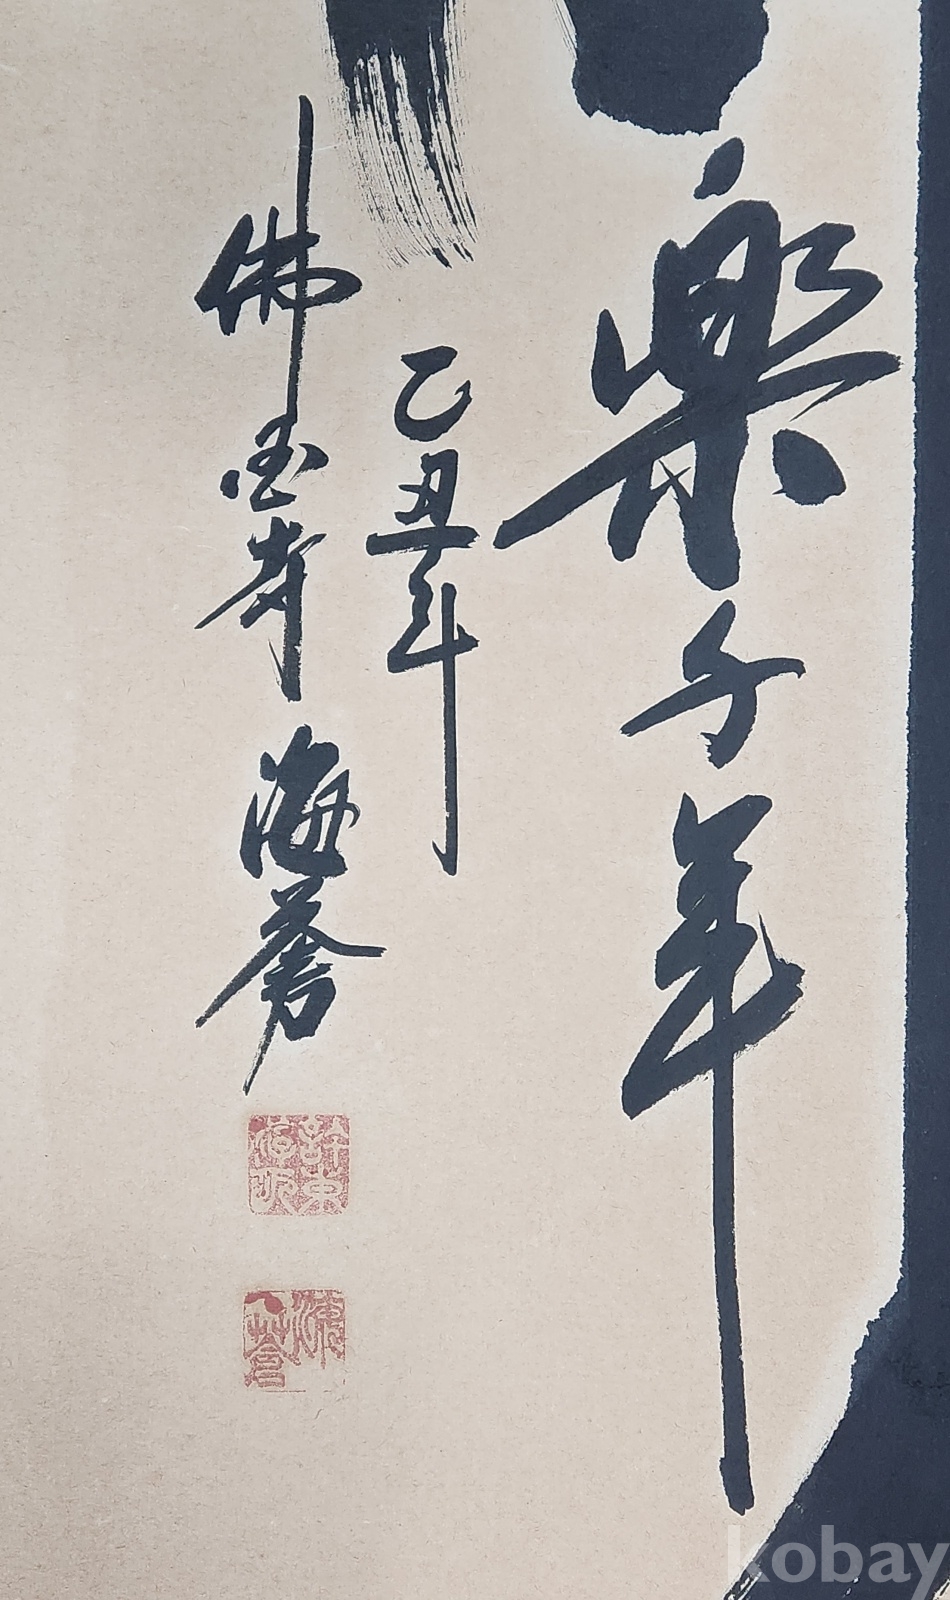 樂千年
乙丑年
佛国寺 海蒼
kobay